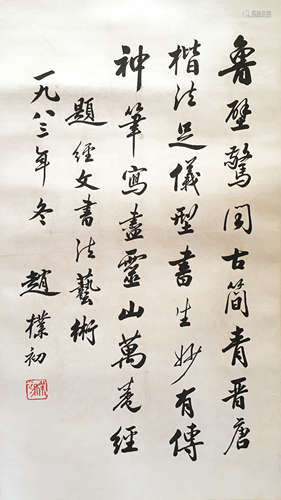 魯壁驚聞古簡青晉唐
楷法足儀型書生妙有傳
神筆寫盡靈山萬卷經
題經文書法藝術
一九八三年冬 趙樸初